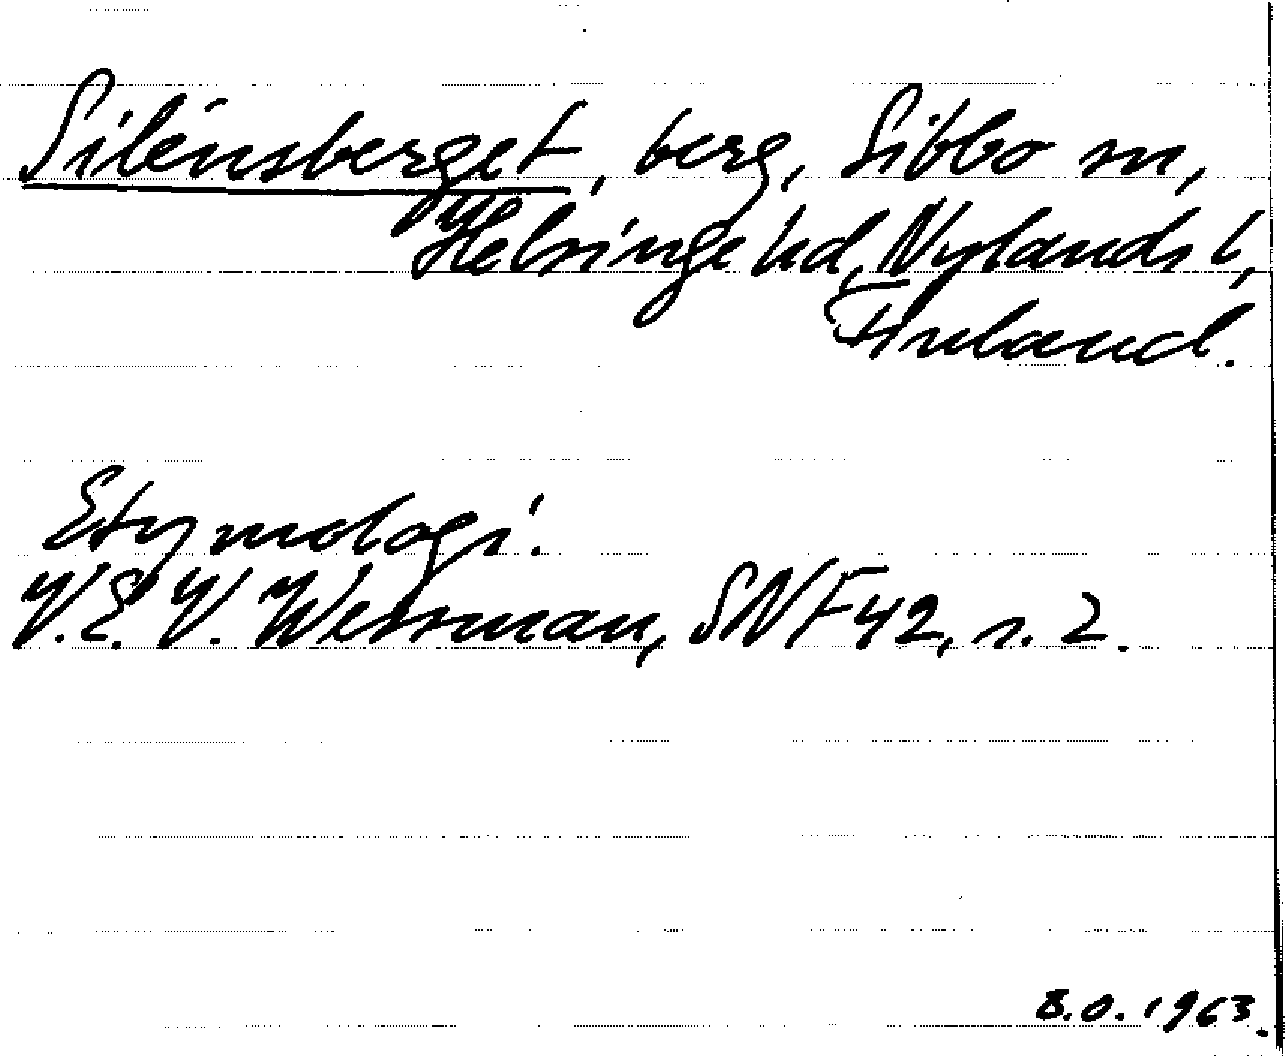 Silénsberget, berg, Sibbo sn,
Helsinge hd, Nylands l,
Finland.
Etymologi.
V.E.V. Wessman, SNF 42, s. 2.
B.O. 1963.